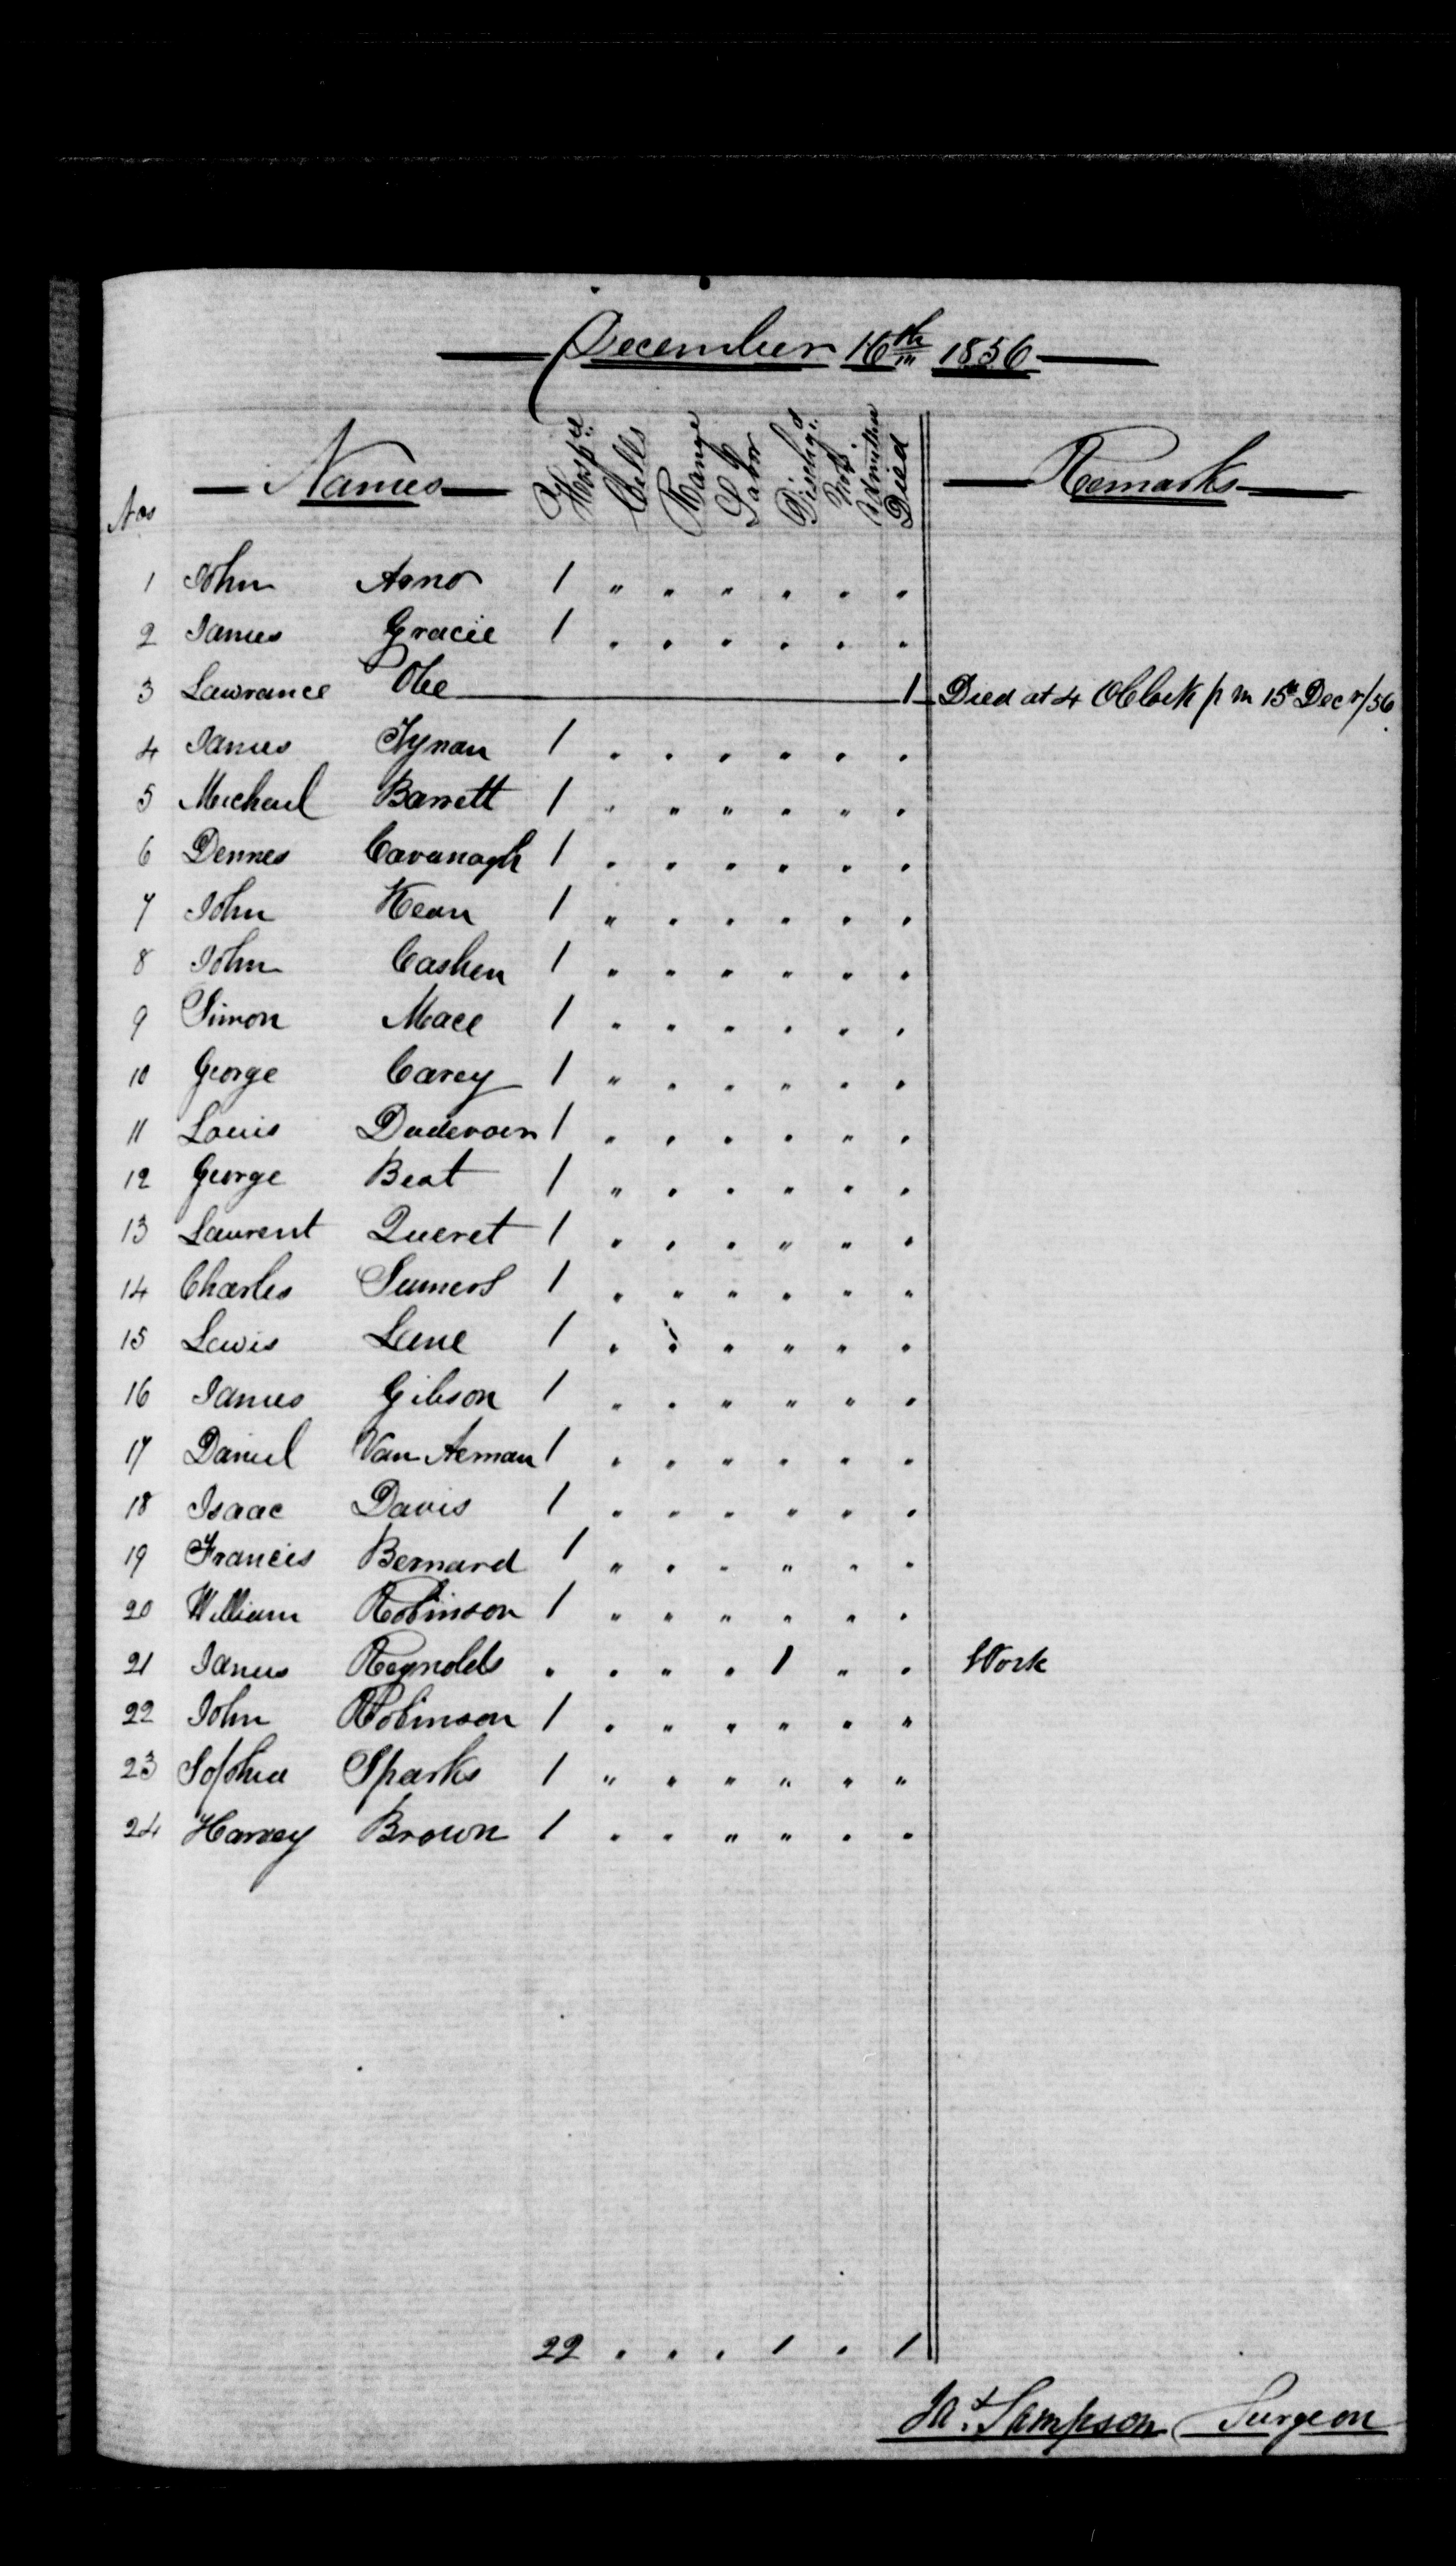 December 16th 1856
Nos Names Hospl Cells Range Labor Dischgd Not Admitted Died Remarks
1 John Arno 1 " " " " " "
2 James Gracie 1 " " " " " "
3 Lawrance Obe 1 Died at 4 OClock p m 15th Decr/56
4 James Tynan 1 " " " " " "
5 Micheal Barrett 1 " " " " " "
6 Dennes Cavanagh 1 " " " " " "
7 John Kean 1 " " " " " "
8 John Cashen 1 " " " " " "
9 Simon Mace 1 " " " " " "
10 George Carey 1 " " " " " "
11 Louis Dudevoir 1 " " " " " "
12 George Beat 1 " " " " " "
13 Laurent Queret 1 " " " " " "
14 Charles Sumers 1 " " " " " "
15 Lewis Lane 1 " " " " " "
16 James Gibson 1 " " " " " "
17 Daniel Van Aernan 1 " " " " " "
18 Isaac Davis 1 " " " " " "
19 Francis Bernard 1 " " " " " "
20 William Robinson 1 " " " " " "
21 James Reynolds " " " " 1 " " Work
22 John Robinson 1 " " " " " "
23 Sophia Sparks 1 " " " " " "
24 Harvey Brown 1 " " " " " "
22 " " " 1 " 1
Jas. Sampson Surgeon